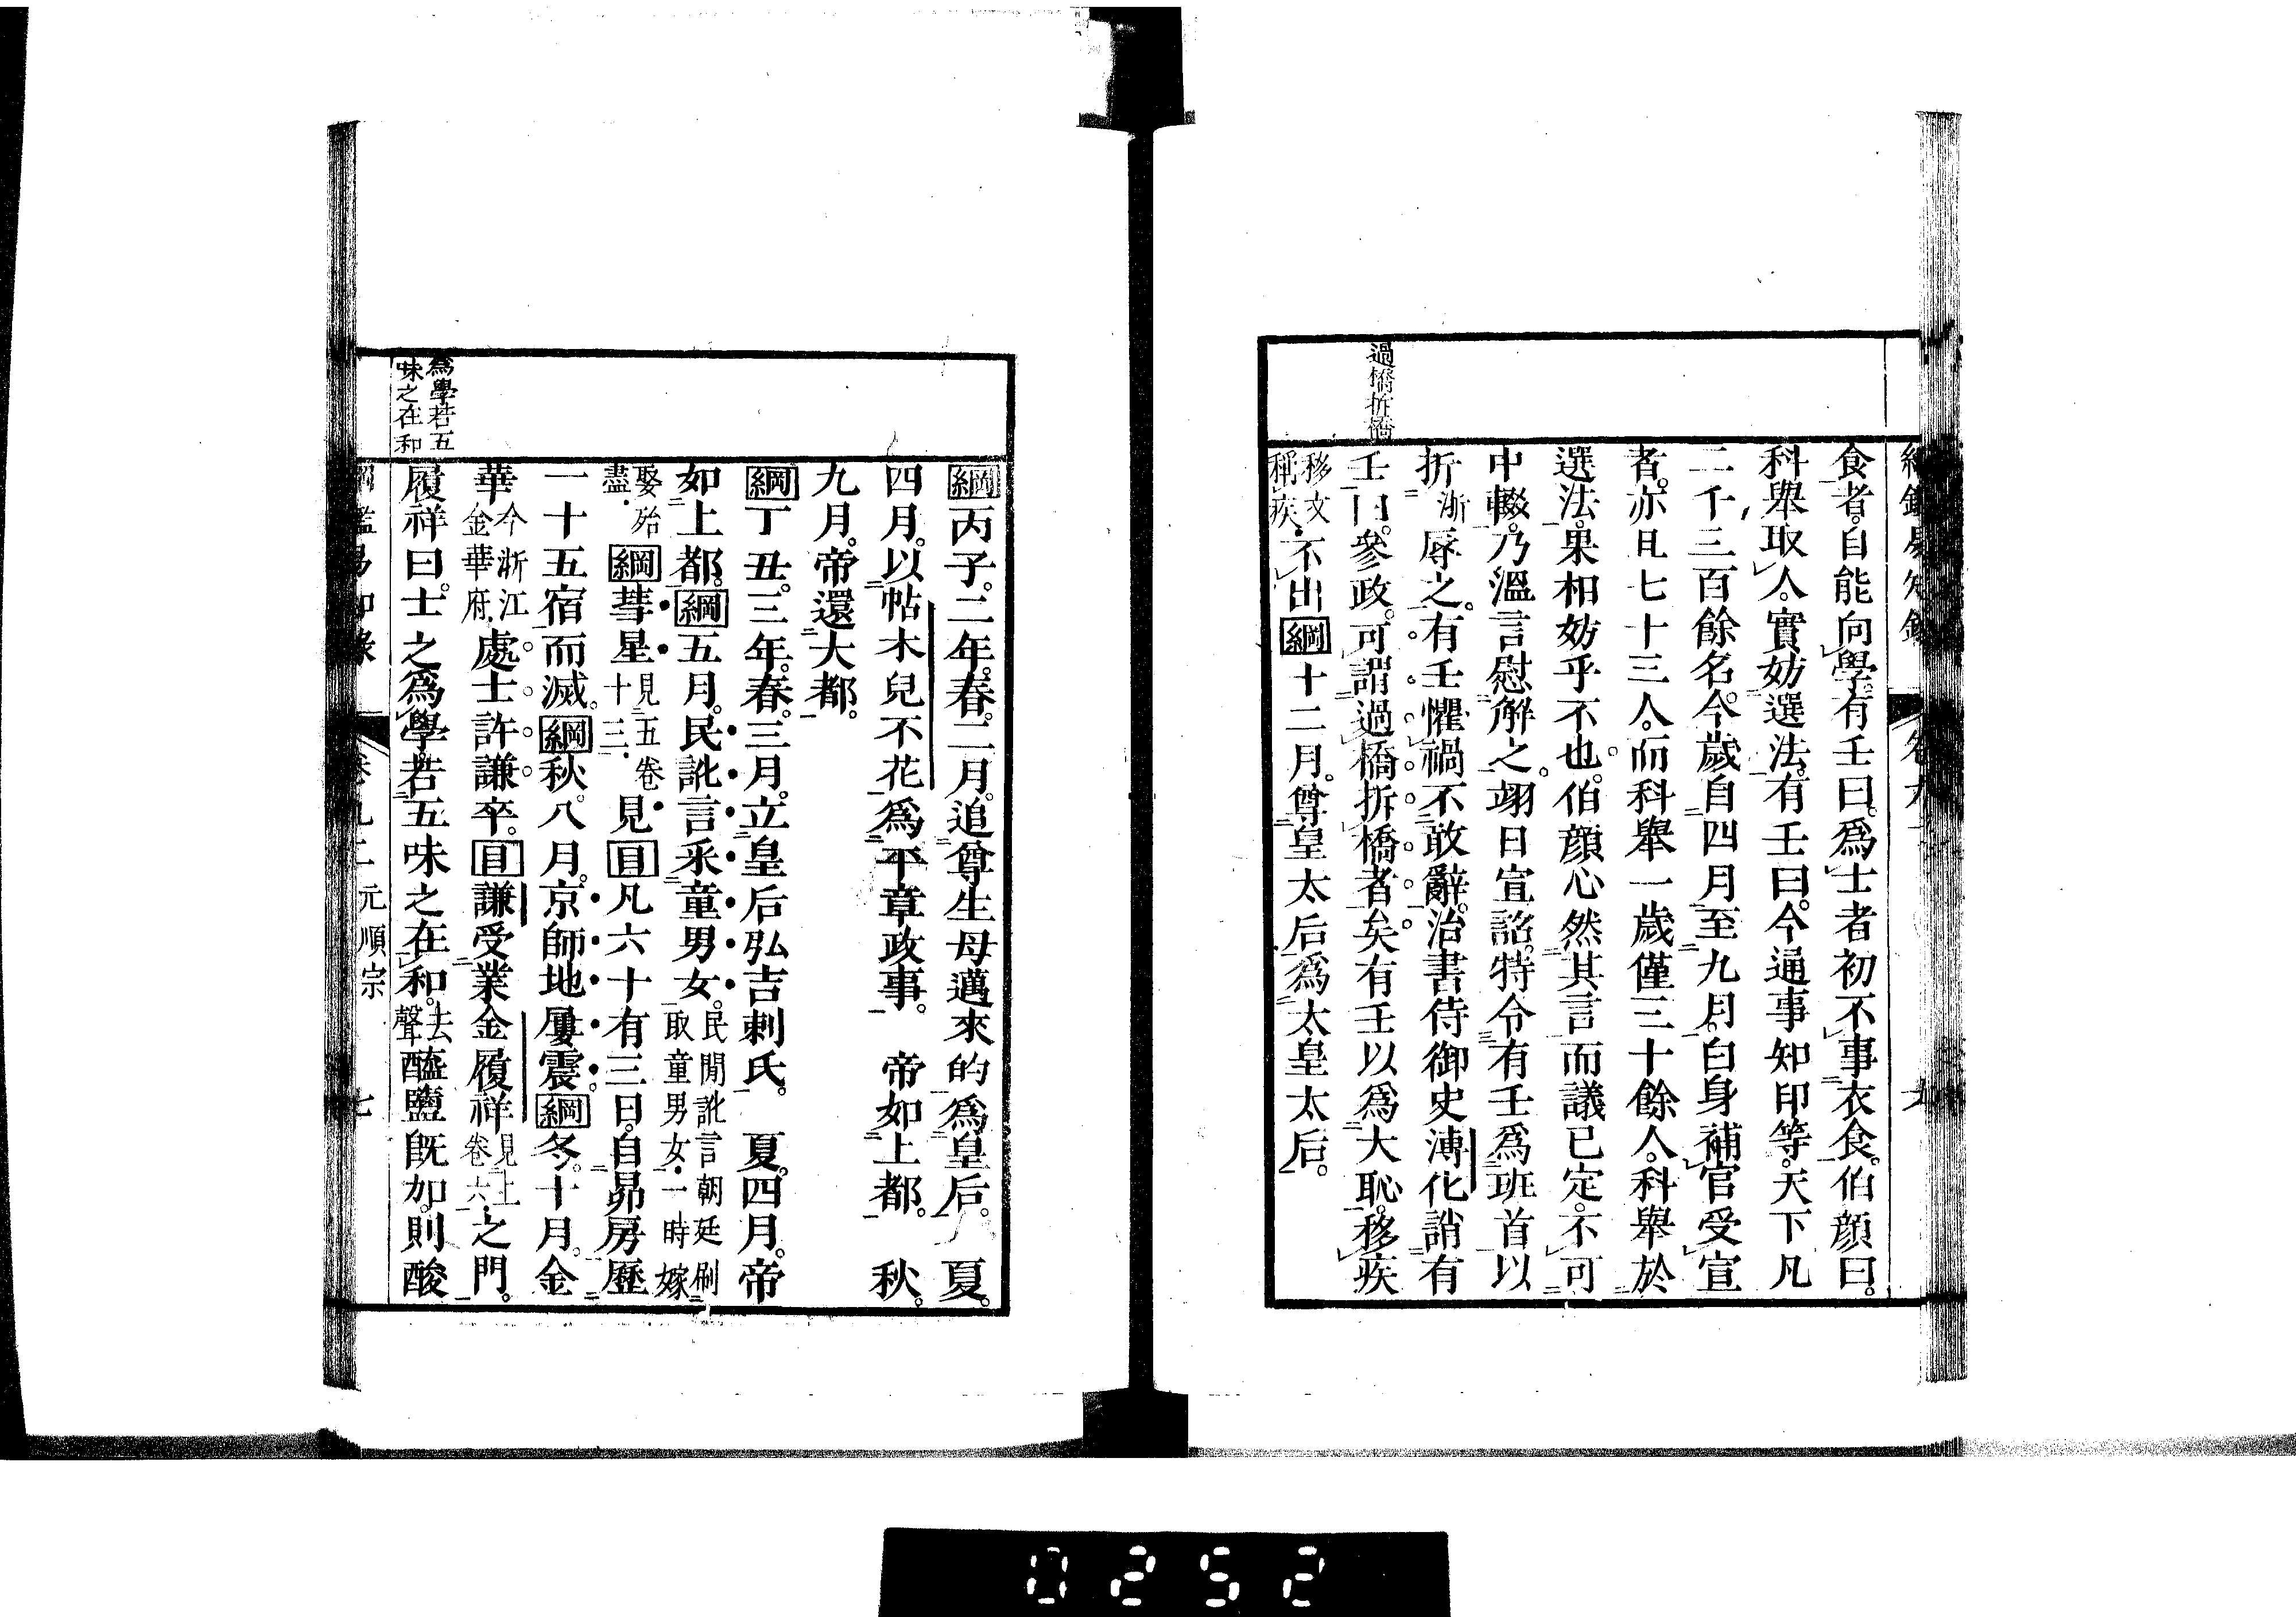 食者自能向學有壬曰爲士者初不事衣食伯顔曰
科舉取人實妨選法有壬曰今通事知印等天下凡
二千三百餘名今歲自四月至九月白身補官受宣
者亦且七十三人而科舉一歲僅三十餘人科舉於
選法果相妨乎不也伯顔心然其言而議已定不可
中輟乃溫言慰解之翊日宣詔特令有壬爲班首以
折漸辱之有壬懼禍不敢辭治書侍御史溥化誚有
過橋拆橋
壬曰參政可謂過橋拆橋者矣有壬以爲大恥移疾
移文
稱疾
不出綱十二月尊皇太后爲太皇太后
綱丙子二年春二月追尊生母邁來的爲皇后 夏
四月以帖木兒不花爲平章政事 帝如上都 秋
九月帝還大都
綱丁丑三年春三月立皇后弘吉剌氏 夏四月帝
如上都綱五月民訛言采童男女民閒訛言朝廷刷
取童男女一時嫁
娶殆
盡
綱彗星見五卷
十三
見目凡六十有三日自昴房歷
一十五宿而滅綱秋八月京師地屢震綱冬十月金
華今浙江
金華府
處士許謙卒目謙受業金履祥見上
卷六
之門
爲學若五
味之在和
履祥曰士之爲學若五味之在和去
聲
醯鹽既加則酸
卷九 元順宗 七
0252